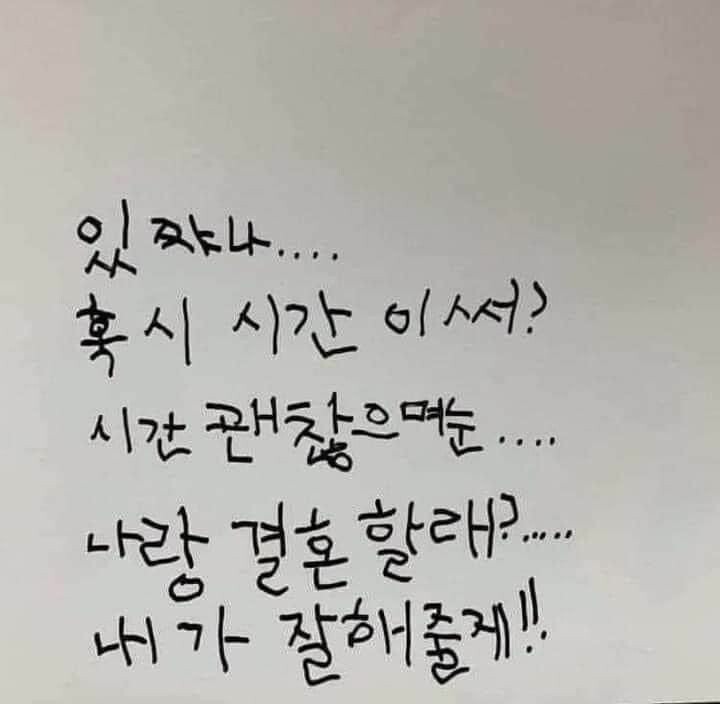 있쟈나....
혹시 시간 이써?
시간 괜찮으며눈....
나랑 결혼할래?.....
내가 잘해줄게!!